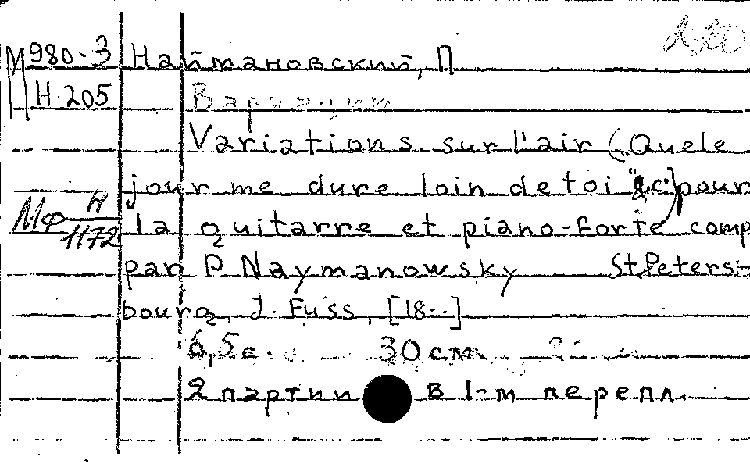 М980-3 Наймановский, П
Н 205 Вариации
Variations sur l'air (Quele
jour me dure loin de toi "&c) pour
Мф Н/1172 la guitarre et piano-forte comp
par P Naymanowsky St Peters-
bourg, J. Fuss, [18--]
6,5с. 30см.
2 партии в 1-м перепл.